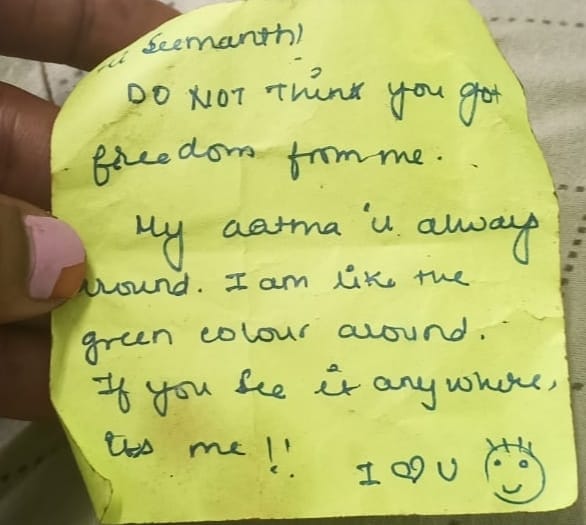 Hi Seemanth!
DO NOT Think you got
freedom from me.
My aatma 'll always
around. I am like the
green colour around.
If you see it any where,
its me !!
I ♡ U